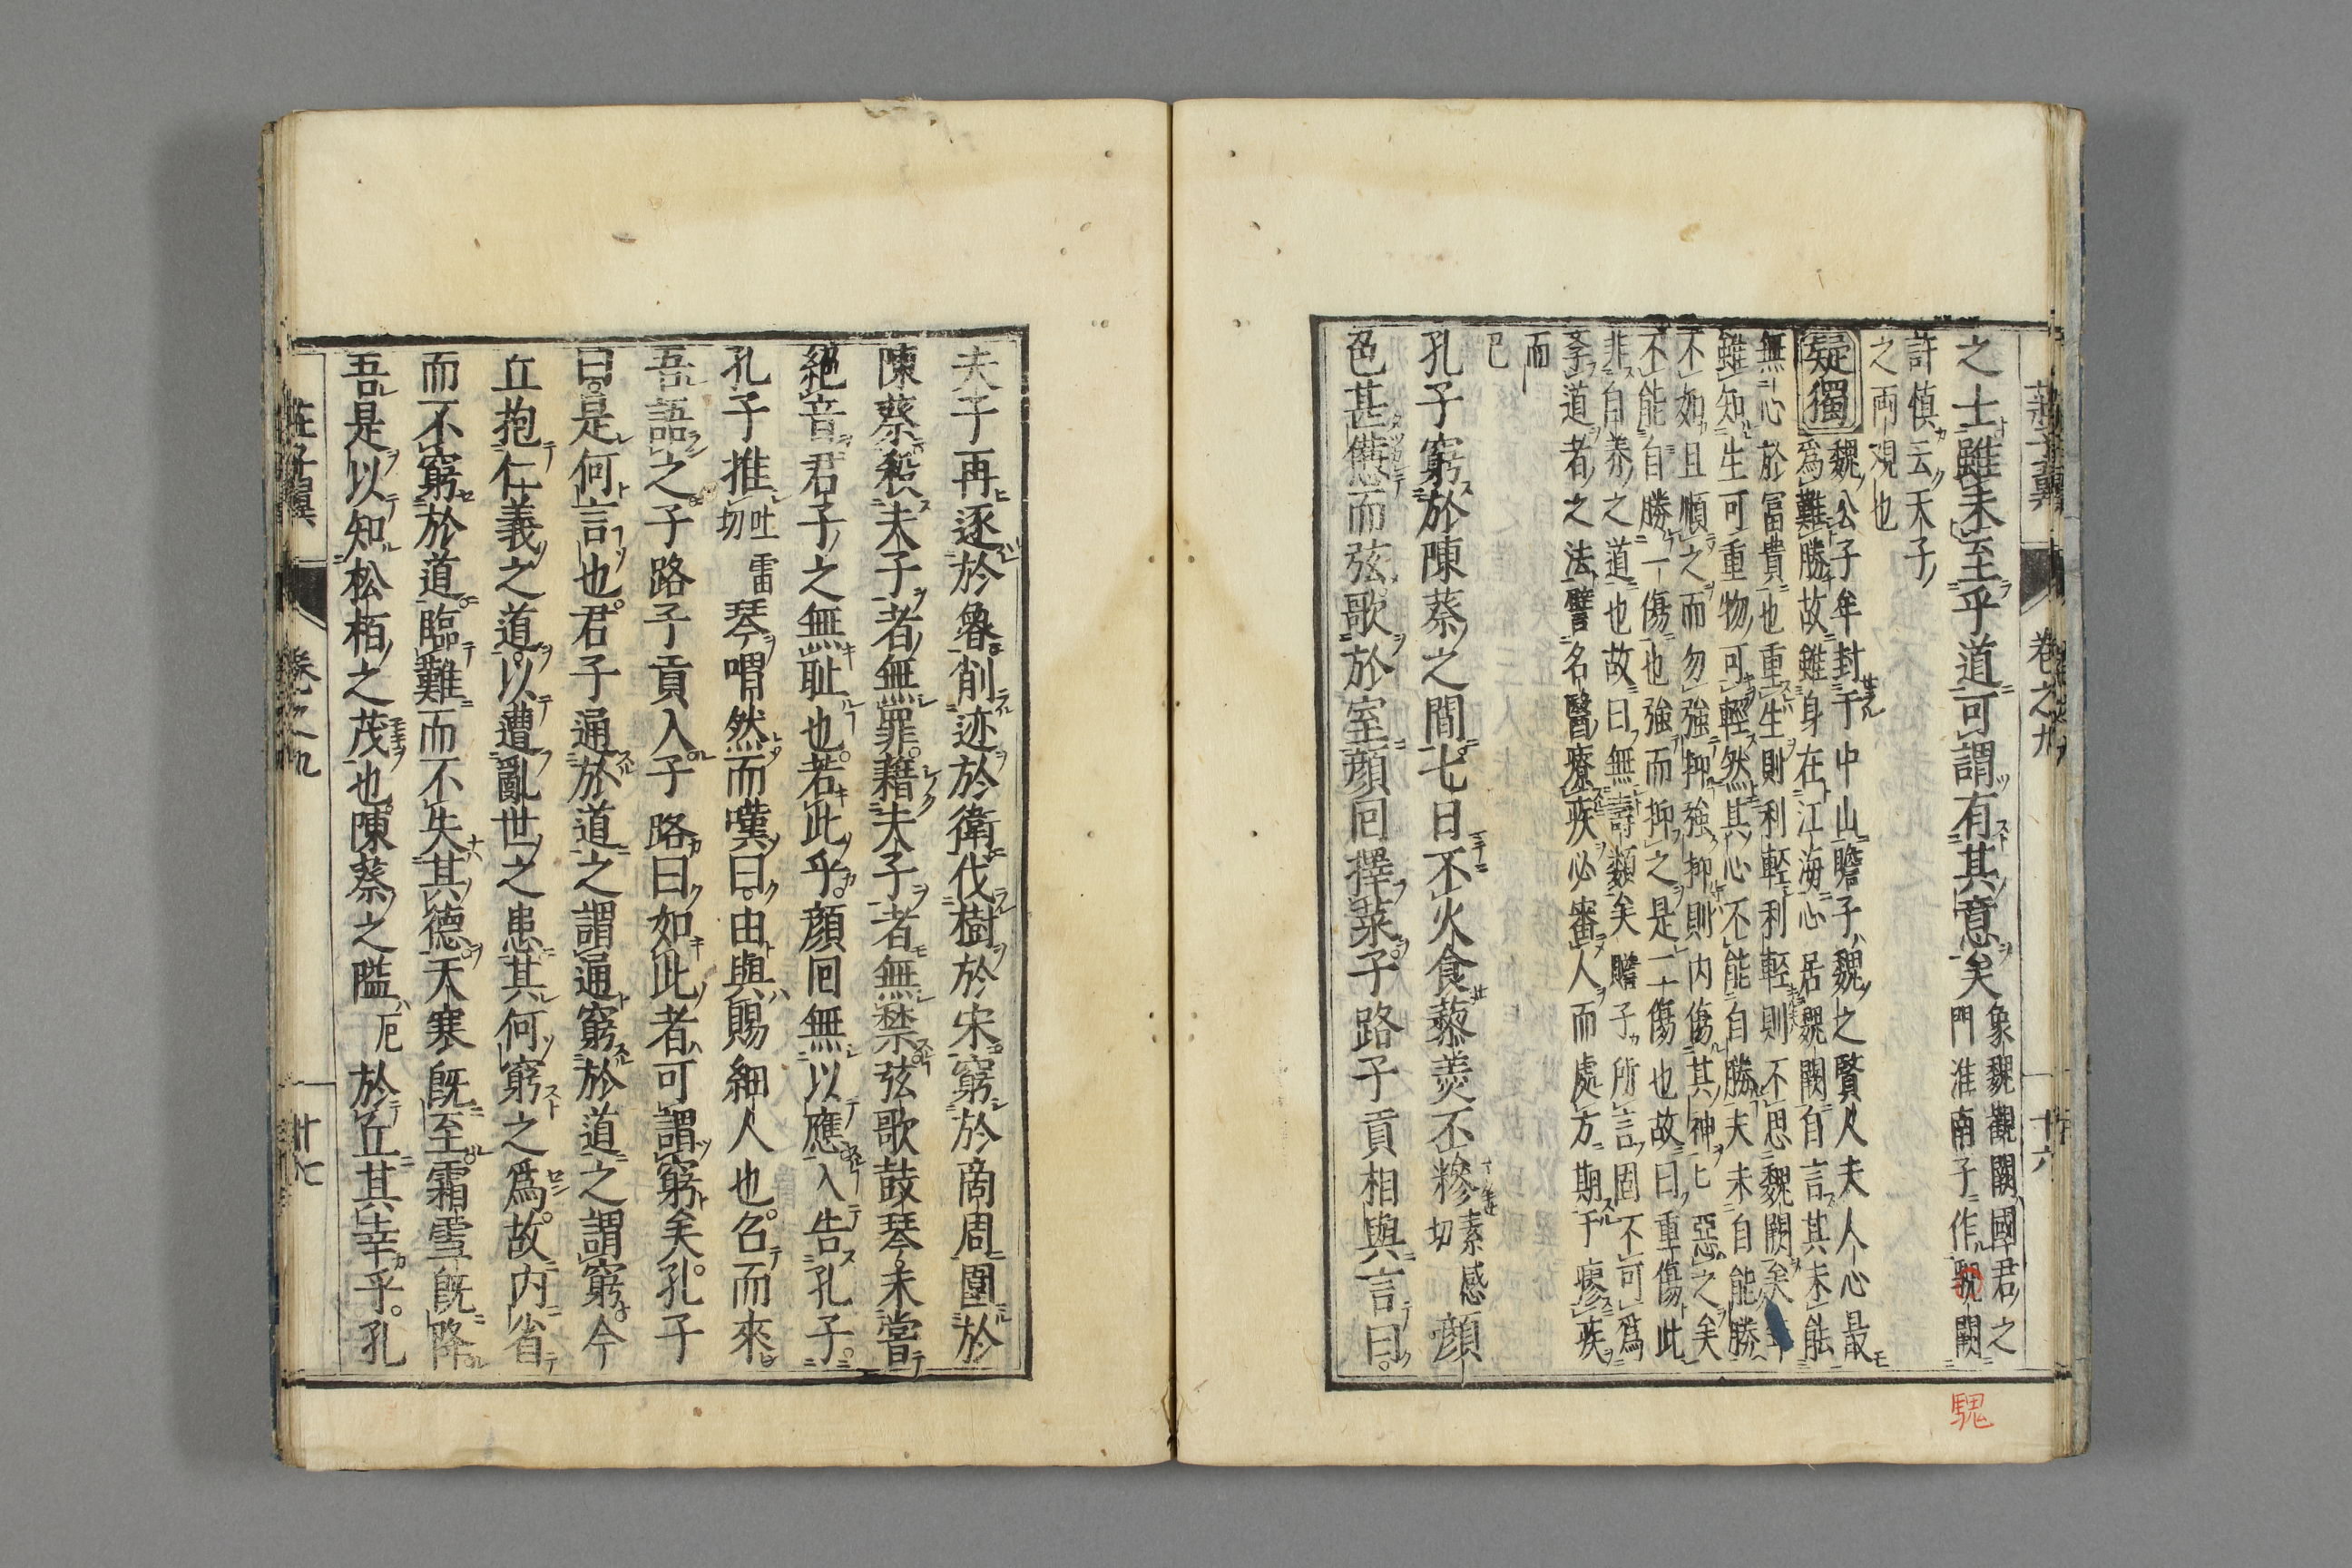 莊子翼 卷之九 十六
之士雖未至乎道可謂有其意矣 象魏觀闕國君之
門淮南子作䫥闕
許慎云天子
之両観也
疑獨 魏公子牟封于中山瞻子魏之賢人夫人心最
爲難勝故雖身在江海心居魏闕自言其未能
無心於冨貴也重生則利輕利輕則不思魏闕矣牟
雖知生可重物可輕然其心不能自勝夫未自能勝
不如且順之而勿強抑強抑則内傷其神匕惡之矣
不能自勝一傷也強而抑之是二傷也故曰重傷此
非自養之道也故曰無壽類矣瞻子所言固不可爲
学道者之法譬名醫療疾必審人而處方期于瘳疾
而
已
孔子窮於陳蔡之間七日不火食藜羮不糝 素感
切 顔
色甚憊而弦歌於室顔回擇菜子路子貢相與言曰
騩
夫子再逐於魯削迹於衛伐樹於宋窮於商周圍於
陳蔡殺夫子者無罪藉夫子者無禁弦歌鼓琴未甞
絶音君子之無耻也若此乎顔回無以應入告孔子
孔子推 吐雷
切 琴喟然而嘆曰由與賜細人也召而來
吾語之子路子貢入子路曰如此者可謂窮矣孔子
曰是何言也君子通於道之謂通窮於道之謂窮今
丘抱仁義之道以遭亂世之患其何窮之爲故内省
而不窮於道臨難而不失其德天寒既至霜雪既降
吾是以知松栢之茂也陳蔡之隘 厄 於丘其幸乎孔
莊子翼 卷之九 十七